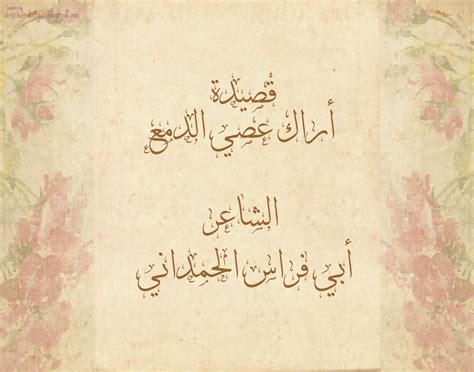 قصيدة
أراك عصي الدمع
الشاعر
أبي فراس الحمداني